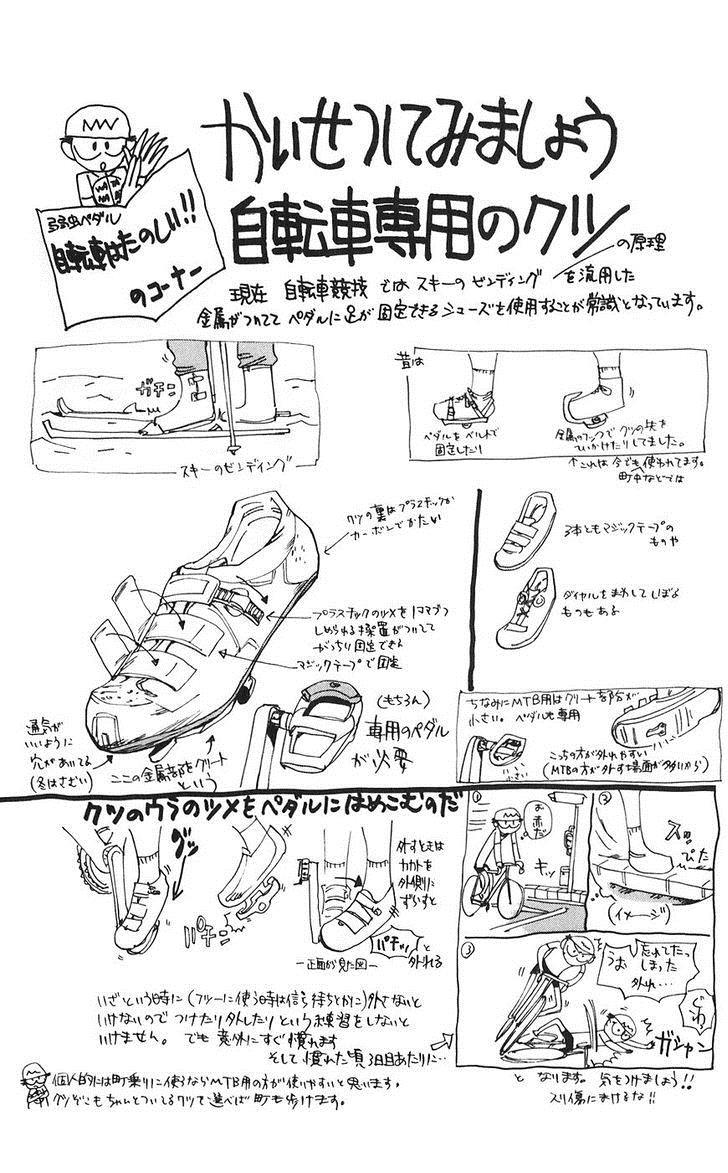 かいせつしてみましょう
自転車専用のクツ
の原理
弱虫ペダル
自転車はたのしい!!
のコーナー
現在 自転車競技では スキーのビンディングを流用した
金属がついてて ペダルに足が固定できるシューズを使用することが常識となっています。
ガチン
スキーのビンディング
昔は
ペダルをベルトで
固定したり
金属のフックでクツの先を
ひっかけたりしてました。
↑これは今でも使われてます。
町中などでは
クツの裏はプラスチックか
カーボンでかたい
プラスチックのツメを1コマづつ
しめられる装置がついてて
がっちり固定できる
マジックテープで固定
3本ともマジックテープの
ものや
ダイヤルをまわしてしぼる
ものもある
通気が
いいように
穴があいてる
(冬はさむい)
ここの金属部をクリート
という
(もちろん)
専用のペダル
が必要
ちなみにMTB用はクリート部分が
小さい。ペダルも専用
小さい
こっちの方が外れやすい
(MTBの方が外す場面が多いから)
クツのウラのツメをペダルにはめこむのだ
グッ
パチン
外すときは
カカトを
外側に
ずらすと
パチッ
と
外れる
―正面から見た図―
①
お
赤だ
キッ
②
スッ
ぴた
(イメージ)
③
うお
忘れてたっ
しまった
外れ…
ぐわ
ガシャン
いざという時に(フツーに使う時は信号待ちとかに)外さないと
いけないので つけたり外したり という練習をしないと
いけません。 でも 意外にすぐ慣れます
そして 慣れた頃 3日目あたりに…
と なります。 気をつけましょう!!
スリ傷にまけるな!!
個人的には町乗りに使うならMTB用の方が使いやすいと思います。
クツぞこもちゃんとついてるクツで選べば町も歩けます。